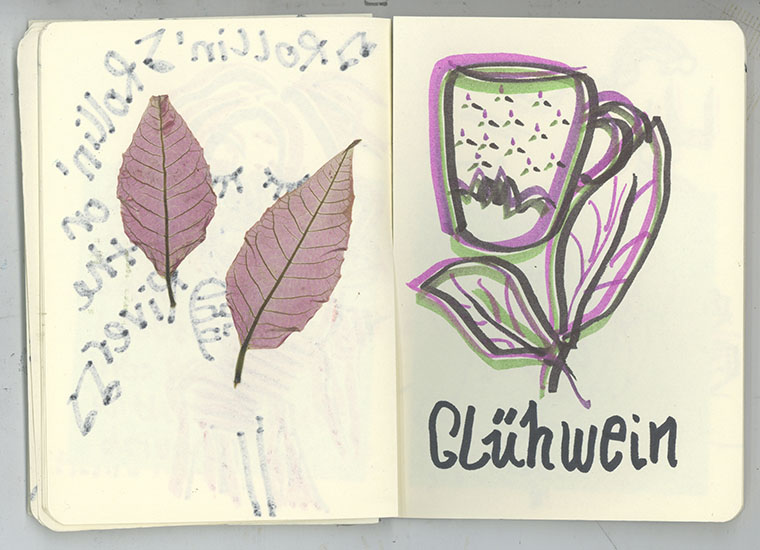 Rollin'
Rollin'
on
the
River
Glühwein